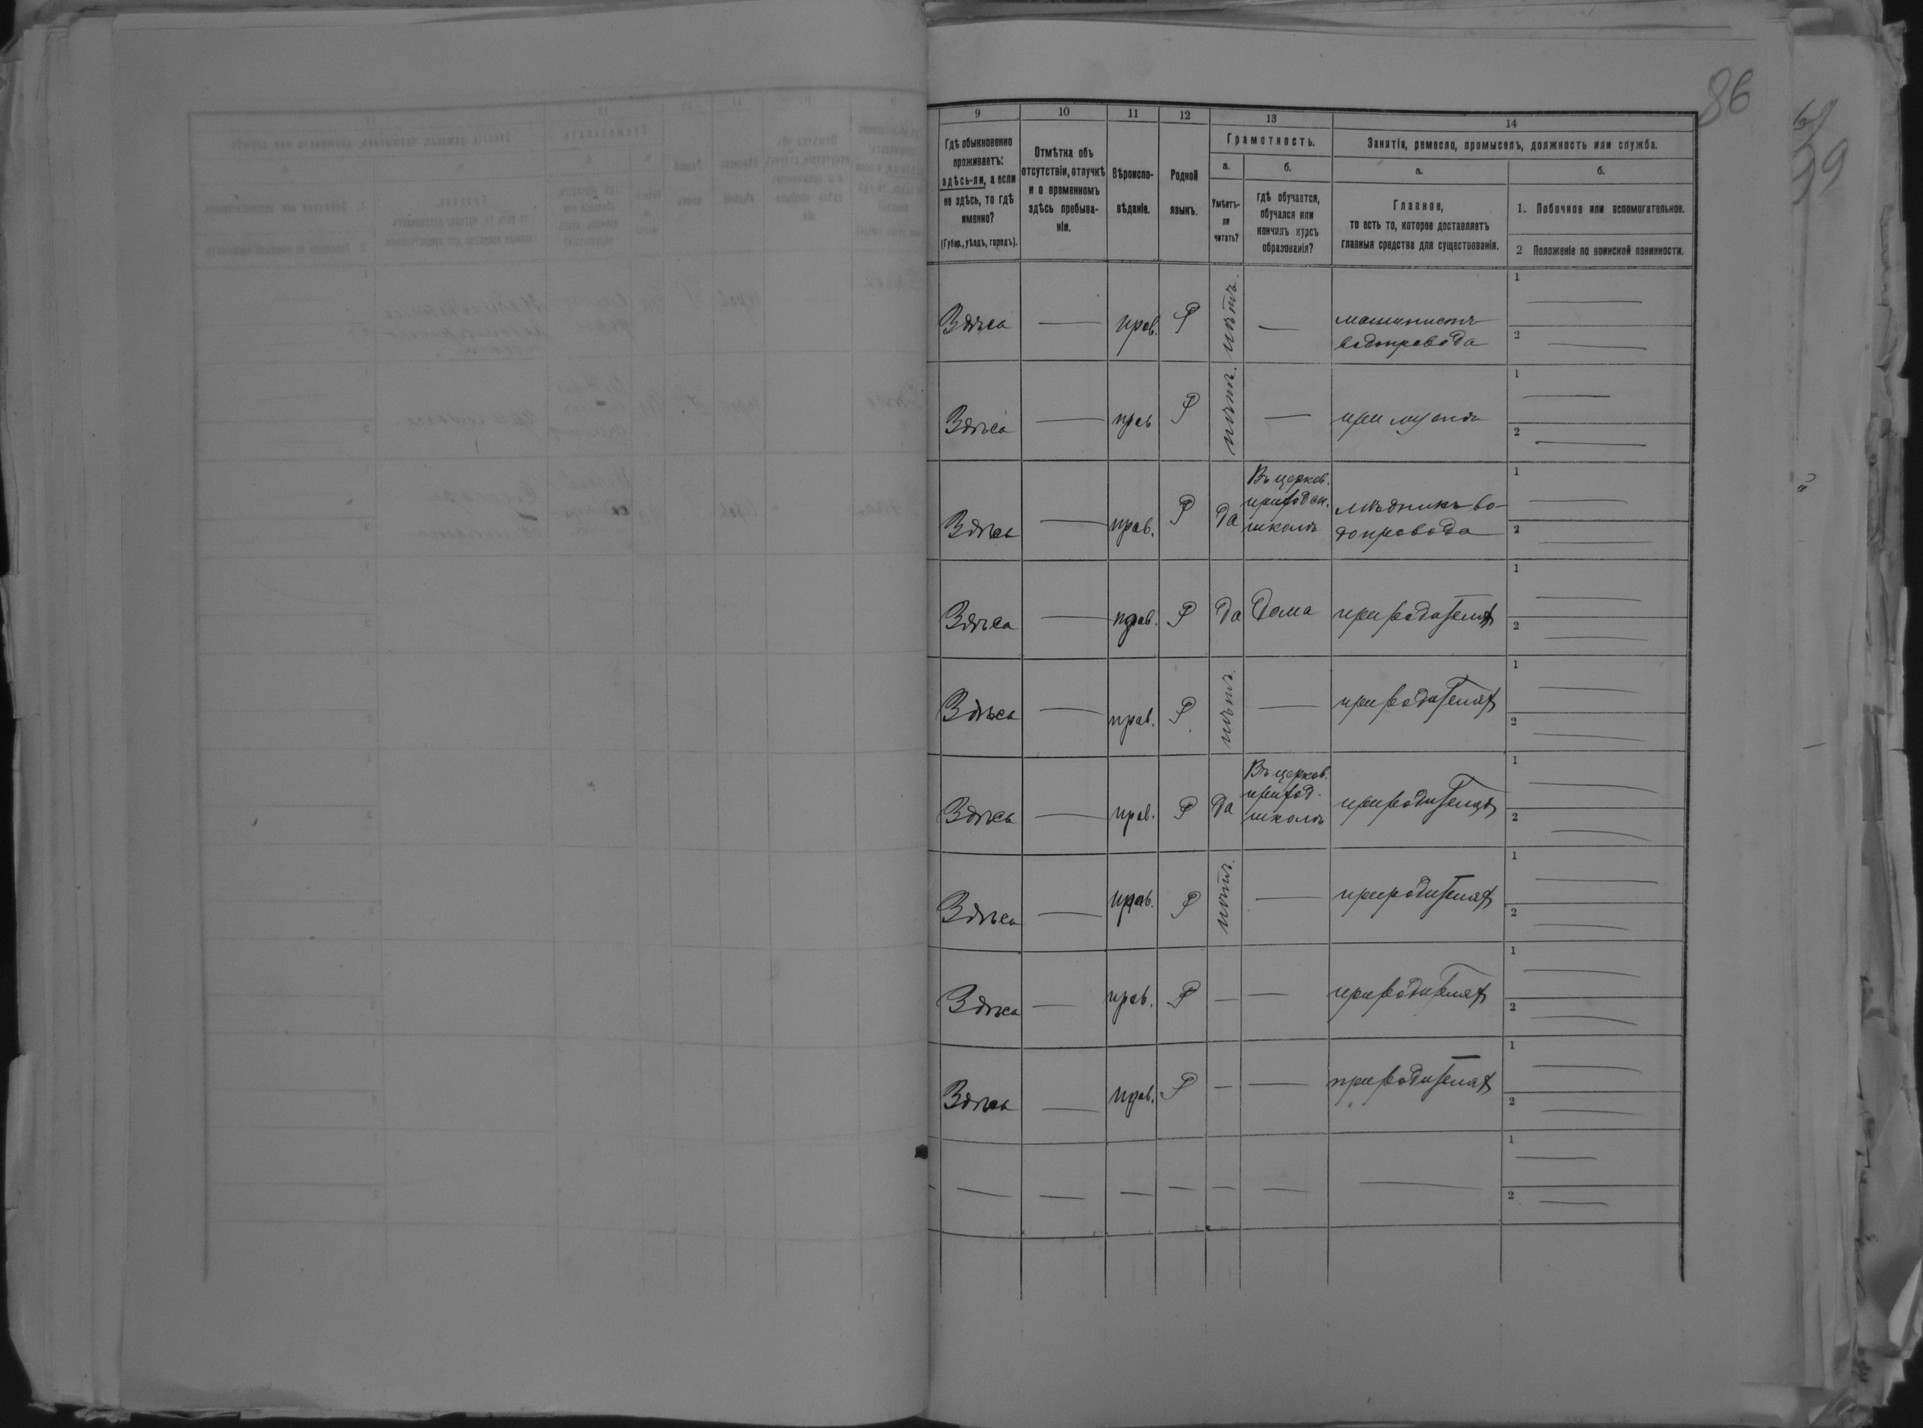 86
9 10 11 12 13 14
Гдѣ обыкновенно
проживаетъ:
здѣсь-ли, а если
не здѣсь, то гдѣ
именно?
(Губер., уѣздъ, городъ).
Отмѣтка объ
отсутствіи, отлучкѣ
и о временномъ
здѣсь пребыва-
ніи.
Вѣроиспо-
вѣданіе.
Родной
языкъ.
Грамотность.
а. б.
Умѣетъ-
ли
читать?
гдѣ обучается,
обучался или
кончилъ курсъ
образованія?
Занятія, ремесло, промыселъ, должность или служба.
а. б.
Главное,
то есть то, которое доставляетъ
главныя средства для существованія.
1. Побочное или вспомогательное.
2 Положеніе по воинской повинности.
Здѣсь — прав. Р нѣтъ. — машинистъ
водопровода
1 —
2 —
Здѣсь — прав Р нѣтъ. — при мужѣ
1 —
2 —
Здѣсь — прав. Р да Въ церков.
приходск.
школѣ
мѣдникъ во-
допровода
1 —
2 —
Здѣсь — прав. Р да Дома при родителях
1 —
2 —
Здѣсь — прав. Р нѣтъ. — при родителях
1 —
2 —
Здѣсь — прав. Р да Въ церков.
приход.
школѣ
при родителях
1 —
2 —
Здѣсь — прав. Р нѣтъ. — при родителях
1 —
2 —
Здѣсь — прав. Р — — при родителях
1 —
2 —
Здѣсь — прав. Р — — при родителях
1 —
2 —
— — — — — — —
1 —
2 —